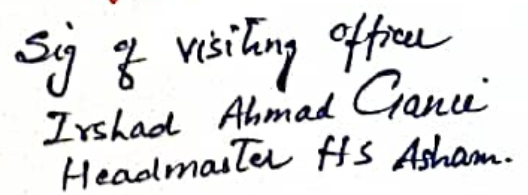 Sig of visiting officer
Irshad Ahmad Ganie
Headmaster HS Asham.